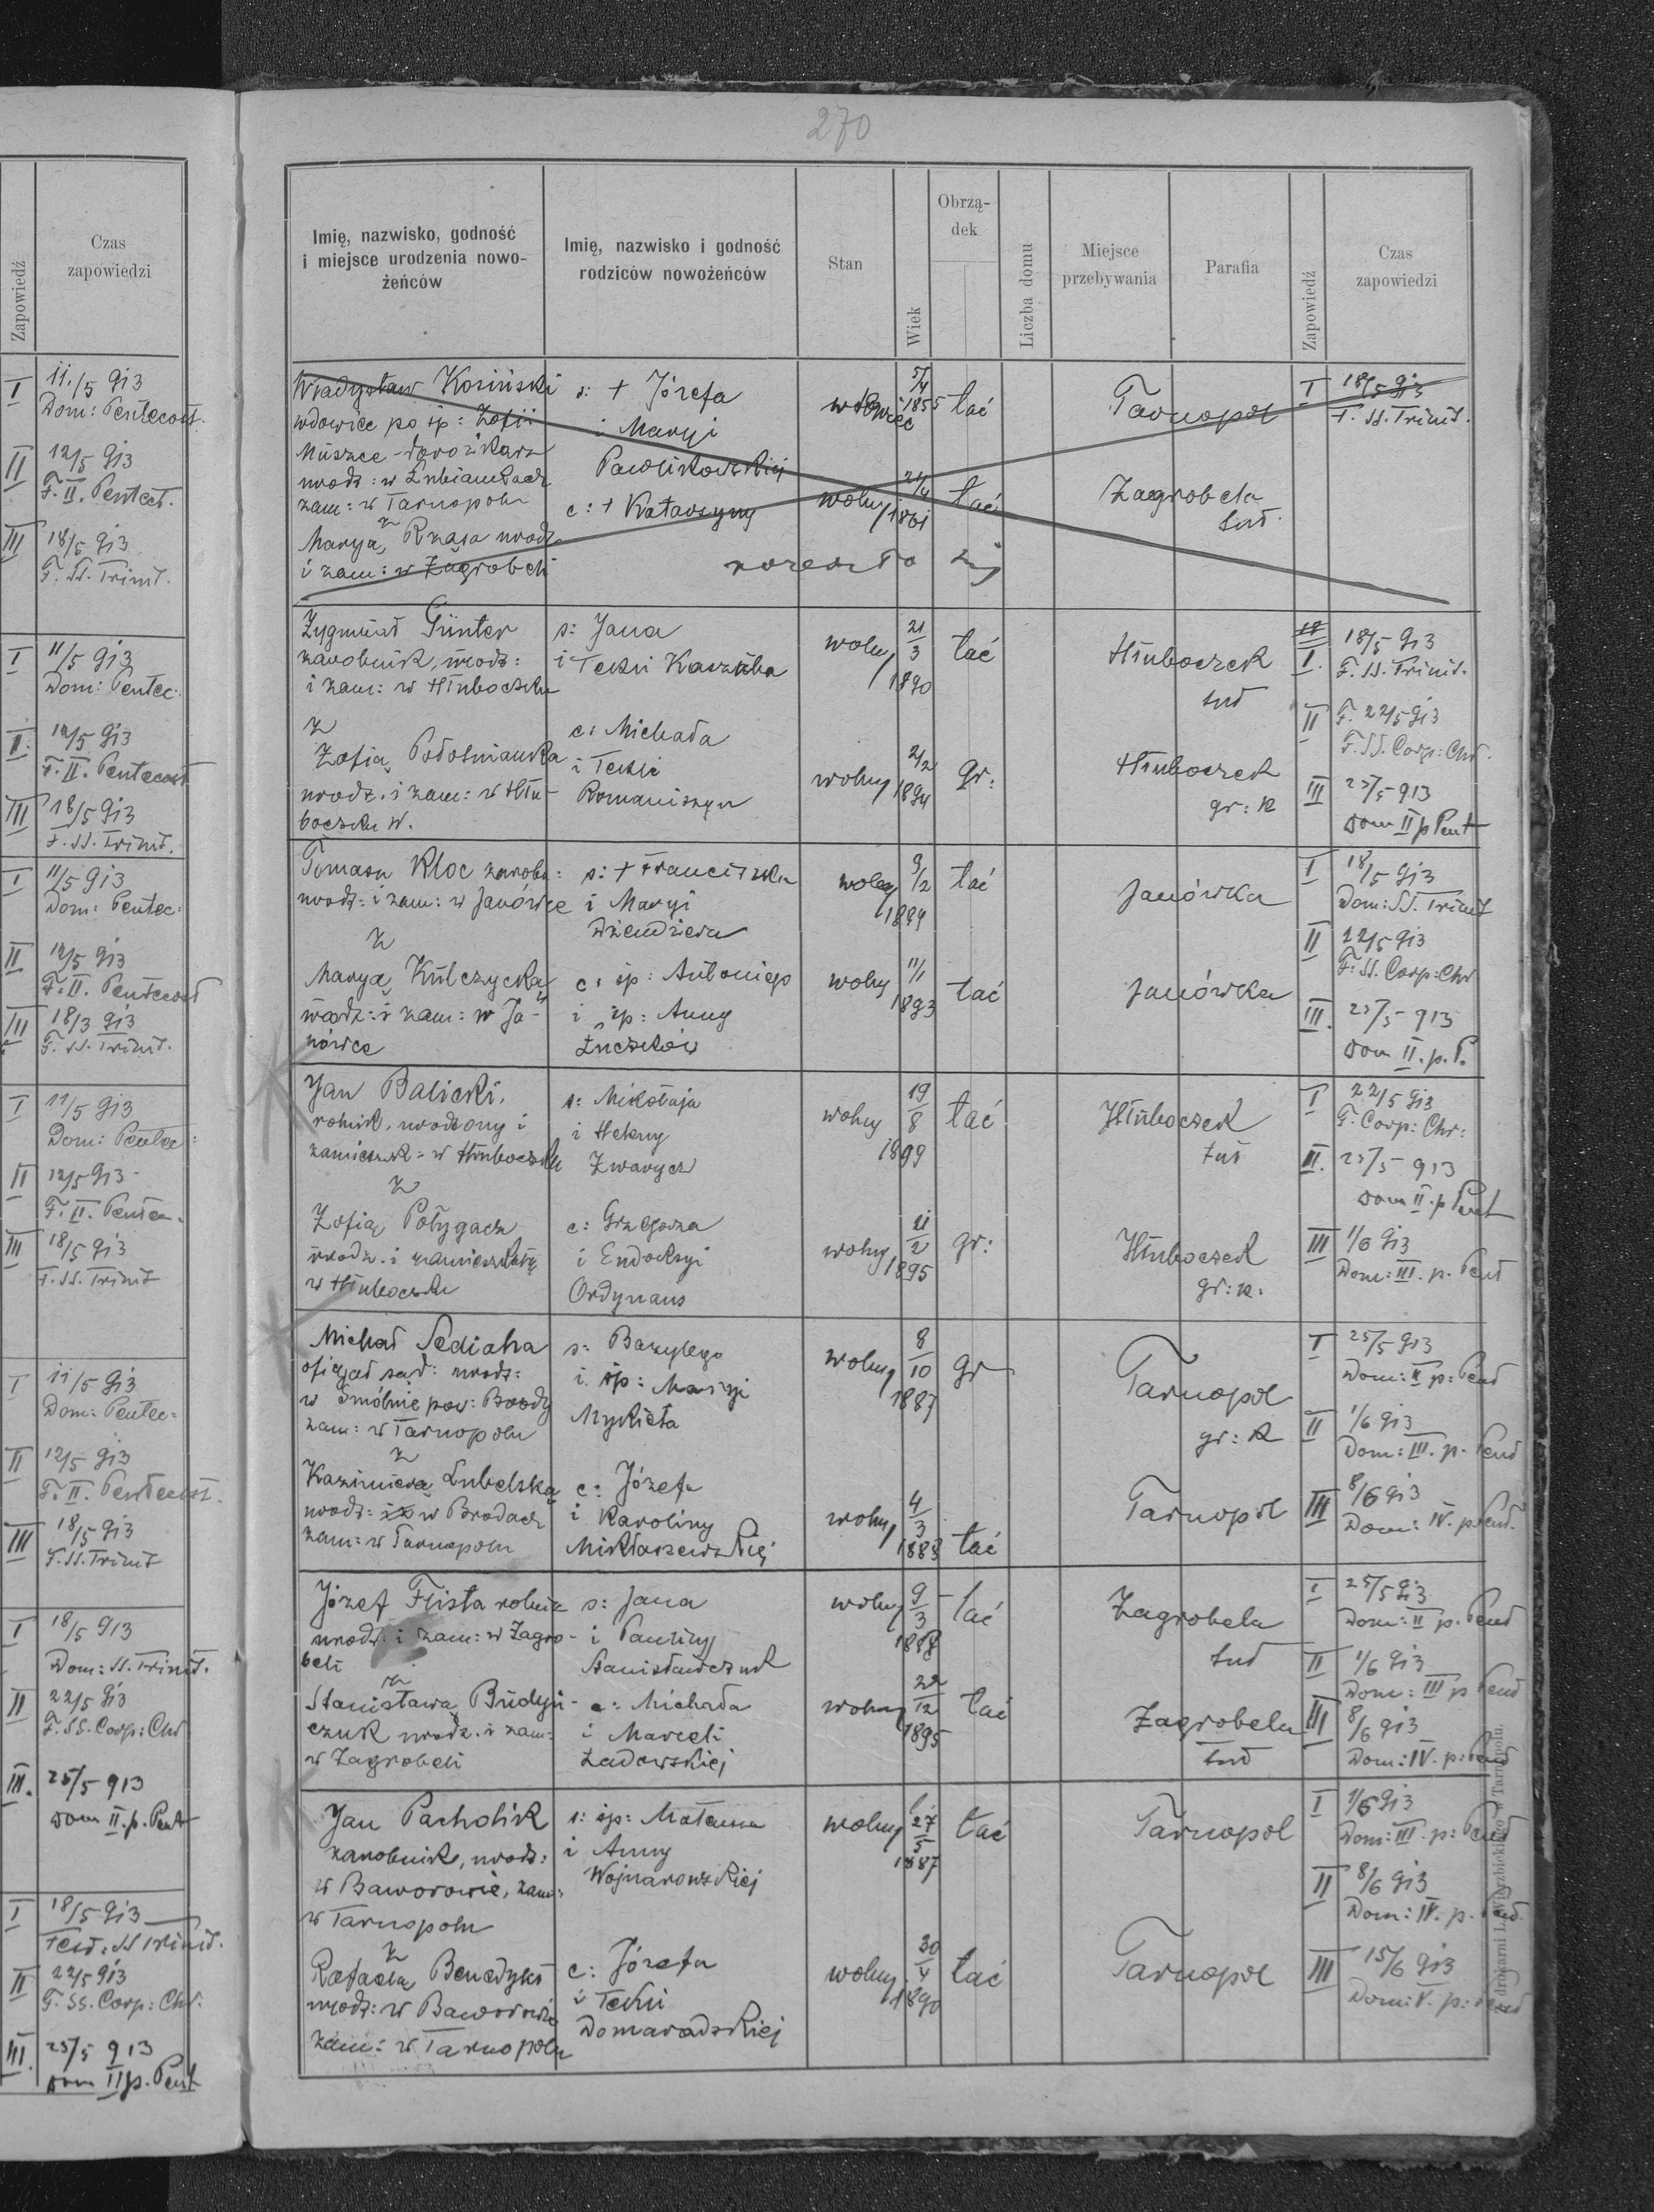 Zapowiedź
Czas
zapowiedzi
I 11/5 913
Dom: Pentecost:
II 12/5 913
F. II. Pentect.
III 18/5 913
F. SS. Trinit.
I 11/5 913
Dom: Pentec:
II. 12/5 913
F. II. Pentecost
III 18/5 913
F. SS. Trinit.
I 11/5 913
Dom: Pentec:
II 12/5 913
F. II. Pentecost
III 18/3 913
F. SS. Trinit.
I 11/5 913
Dom: Pentec:
II 12/5 913
F. II. Pentec.
III 18/5 913
F. SS. Trinit
I 11/5 913
Dom: Pentec:
II 12/5 913
F. II. Pentecost.
III 18/5 913
F. SS. Trinit
I 18/5 913
Dom: SS. Trinit.
II 22/5 913
F. SS. Corp: Chr
III. 25/5 913
Dom II. p. Pent
I 18/5 913
Fest: SS Trinit.
II 22/5 913
F. SS. Corp: Chr.
III. 25/5 913
Dom II p. Pent
270
Imię, nazwisko, godność
i miejsce urodzenia nowo-
żeńców
Imię, nazwisko i godność
rodziców nowożeńców
Stan
Wiek
Obrzą-
dek
Liczba domu
Miejsce
przebywania
Parafia
Zapowiedź
Czas
zapowiedzi
Władysław Kosiński
wdowiec po śp: Zofii
Muszce dorożkarz
urodz: w Łubiankach
zam: w Tarnopolu
z
Maryą Rzasa urodz
i zam: w Zagrobeli
s: + Józefa
i Maryi
Pawlikowskiej
c: + Katarzyny
wdowiec 5/4 1855 łać
wolny 21/4 1861 łać
rozeszło się
Tarnopol
Zagrobela
tut.
I 18/5 913
F. SS. Trinit.
Zygmunt Günter
zarobnik, urodz:
i zam: w Hłuboczku
z
Zofią Podolmianka
urodz. i zam: w Hłu-
boczku W.
s: Jana
i Tekli Kaszuba
c: Michała
i Tekli
Romaniszyn
wolny 21/3 1890 łać
wolny 21/2 1894 gr:
Hłuboczek
tut
Hłuboczek
gr: k
I. 18/5 913
F. SS. Trinit.
II F. 22/5 913
F. SS. Corp: Chr.
III 25/5 913
Dom II p Pent
Tomasz Kloc zarobn:
urodz: i zam: w Janówce
z
Maryą Kulczycką
urodz: i zam: w Ja-
nówce
s: + Franciszka
i Maryi
Dziendziera
c: śp: Antoniego
i śp: Anny
Łuczków
wolny 9/2 1894 łać
wolny 11/1 1893 łać
Janówka
Janówka
I 18/5 913
Dom: SS. Trinit
II 22/5 913
F. SS. Corp: Chr
III. 25/5 913
Dom II. p. P.
Jan Balicki.
rolnik, urodzony i
zamieszk: w Hłuboczku
z
Zofią Połygacz
urodz. i zamieszkałą
w Hłuboczku
s: Mikołaja
i Heleny
Zwarycz
c: Grzegorza
i Eudoksyi
Ordynans
wolny 19/8 1899 łać
wolny 1895 gr:
Hłuboczek
tut
Hłuboczek
gr: k.
I 22/5 913
F. Corp: Chr:
II. 25/5 913
Dom II. p Pent
III 1/6 913
Dom: III. p. Pent
Michał Pediaha
oficjał sąd: urodz:
w Smólnie pow: Brody
zam: w Tarnopolu
z
Kazimierą Lubelską
urodz: w Brodach
zam: w Tarnopolu
s: Bazylego
i śp: Maryi
Mykieta
c: Józefa
i Karoliny
Mikłaszewskiej
wolny 8/10 1887 gr
wolny 4/3 1888 łać
Tarnopol
gr: k
Tarnopol
I 25/5 913
Dom: II p: Pent
II 1/6 913
Dom: III. p. Pent
III 8/6 913
Dom: IV. p. Pent.
Józef Flista rolnik
urodz: i zam: w Zagro-
beli
z
Stanisławą Budyń-
czuk urodz. i zam:
w Zagrobeli
s: Jana
i Pauliny
Stanisławczuk
c: Michała
i Marceli
Ładowskiej
wolny 9/3 1888 łać
wolny 22/12 1895 łać
Zagrobela
tut
Zagrobela
tut
I 25/5 913
Dom: II p. Pent
II 1/6 913
Dom: III p Pent
III 8/6 913
Dom: IV. p: Pent
Jan Pacholik
zarobnik, urodz:
w Baworowie, zam:
w Tarnopolu
z
Rafaelą Benedykt
urodz: w Baworowie
zam: w Tarnopolu
s: śp: Mateusza
i Anny
Wojnarowskiej
c: Józefa
i Tekli
Domaradzkiej
wolny 27/5 1887 łać
wolny 30/4 1890 łać
Tarnopol
Tarnopol
I 1/6 913
Dom: III. p: Pent
II 8/6 913
Dom: IV. p. Pent
III 15/6 913
Dom: V. p: Pent
drukarni L. Wierzbickiego w Tarnopolu.